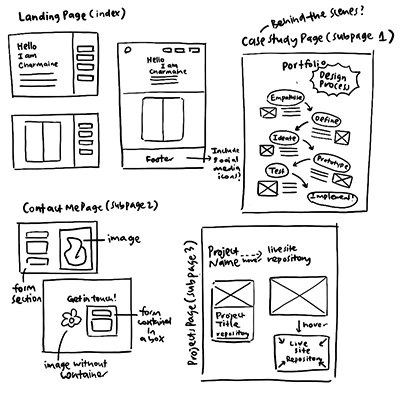 Landing Page (index)
Hello
I am
Charmaine
Hello
I am
Charmaine
Footer
Include
social
media
icons!
Behind the scenes?
Case Study Page (subpage 1)
Portfolio
Design
Process
Empathise
Define
Ideate
Prototype
Test
Implement!
Contact Me Page (subpage 2)
image
form
section
Get in touch!
form
contained
in a
box
image without
container
Projects Page (subpage 3)
Project
Name
hover
live site
repository
Project
Title
repository
hover
Live
Site
Repository